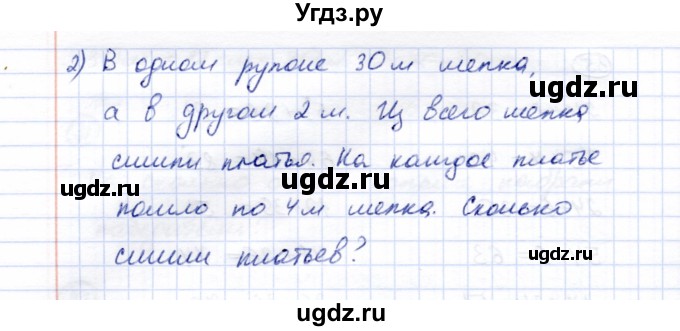 Угдз.ру
2) В одном рулоне 30 м шелка,
а в другом 2 м. Из всего шелка
сшили платья. На каждое платье
пошло по 4 м шелка. Сколько
сшили платьев?
©gdz.ru
©gdz.ru
©gdz.ru
©gdz.ru
©gdz.ru